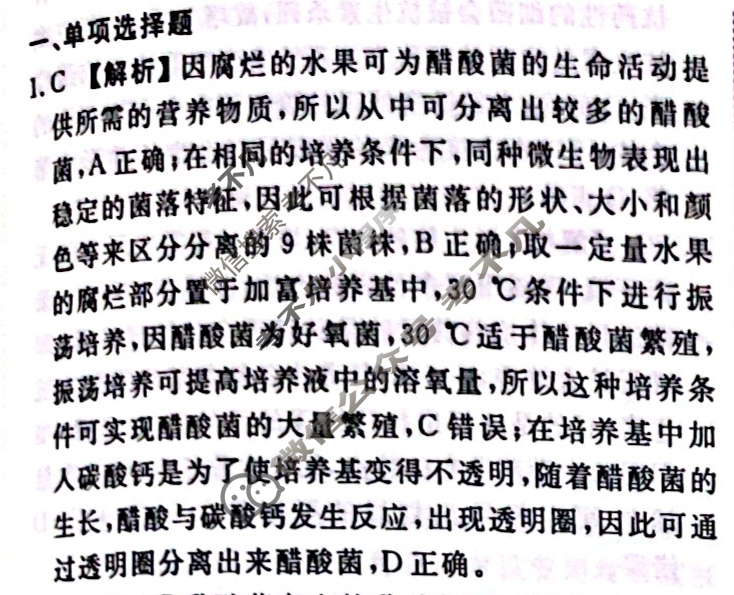 一、单项选择题
1.C 【解析】因腐烂的水果可为醋酸菌的生命活动提
供所需的营养物质,所以从中可分离出较多的醋酸
菌,A正确;在相同的培养条件下,同种微生物表现出
稳定的菌落特征,因此可根据菌落的形状、大小和颜
色等来区分分离的9株菌株,B正确;取一定量水果
的腐烂部分置于加富培养基中,30 ℃条件下进行振
荡培养,因醋酸菌为好氧菌,30 ℃适于醋酸菌繁殖,
振荡培养可提高培养液中的溶氧量,所以这种培养条
件可实现醋酸菌的大量繁殖,C错误;在培养基中加
入碳酸钙是为了使培养基变得不透明,随着醋酸菌的
生长,醋酸与碳酸钙发生反应,出现透明圈,因此可通
过透明圈分离出来醋酸菌,D正确。